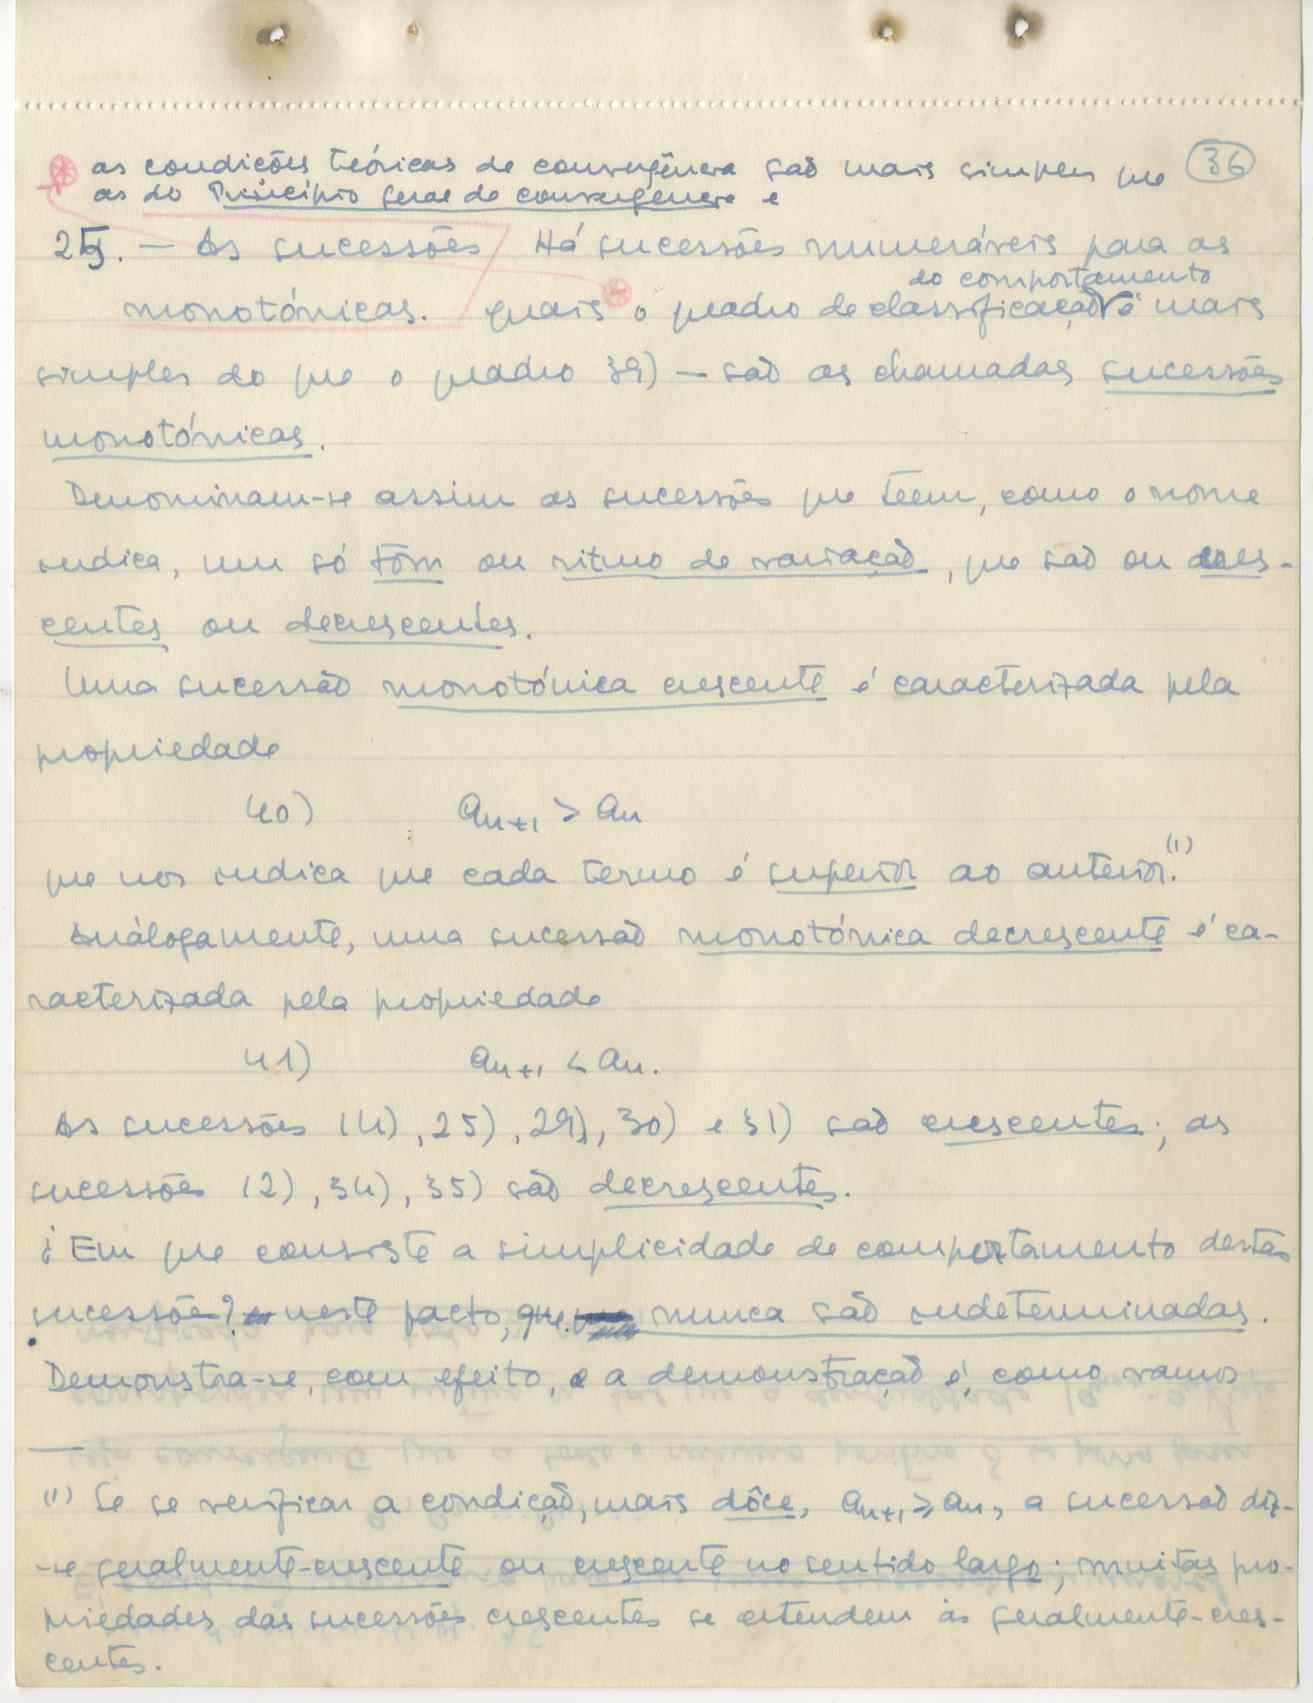 as condições teóricas de convergência são mais simples que
36
as do Princípio geral de convergência e
25. — As sucessões Há sucessões numeráveis para as
do comportamento
monotónicas. quais o quadro de classificação é mais
simples do que o quadro 39) — são as chamadas sucessões
monotónicas.
Denominam-se assim as sucessões que teem, como o nome
indica, um só tom ou ritmo de variação, que são ou cres-
centes ou decrescentes.
Uma sucessão monotónica crescente é caracterizada pela
propriedade
40) an+1 > an
que nos indica que cada termo é superior ao anterior.(1)
Análogamente, uma sucessão monotónica decrescente é ca-
racterizada pela propriedade
41) an+1 < an.
As sucessões 14), 25), 29), 30) e 31) são crescentes; as
sucessões 12), 34), 35) são decrescentes.
¿Em que consiste a simplicidade de comportamento destas
sucessões? neste facto, que nunca são indeterminadas.
Demonstra-se, com efeito, e a demonstração é, como vamos
(1) Se se verificar a condição, mais dôce, an+1 ⩾ an, a sucessão diz-
-se geralmente-crescente ou crescente no sentido largo; muitas pro-
priedades das sucessões crescentes se estendem às geralmente-cres-
centes.